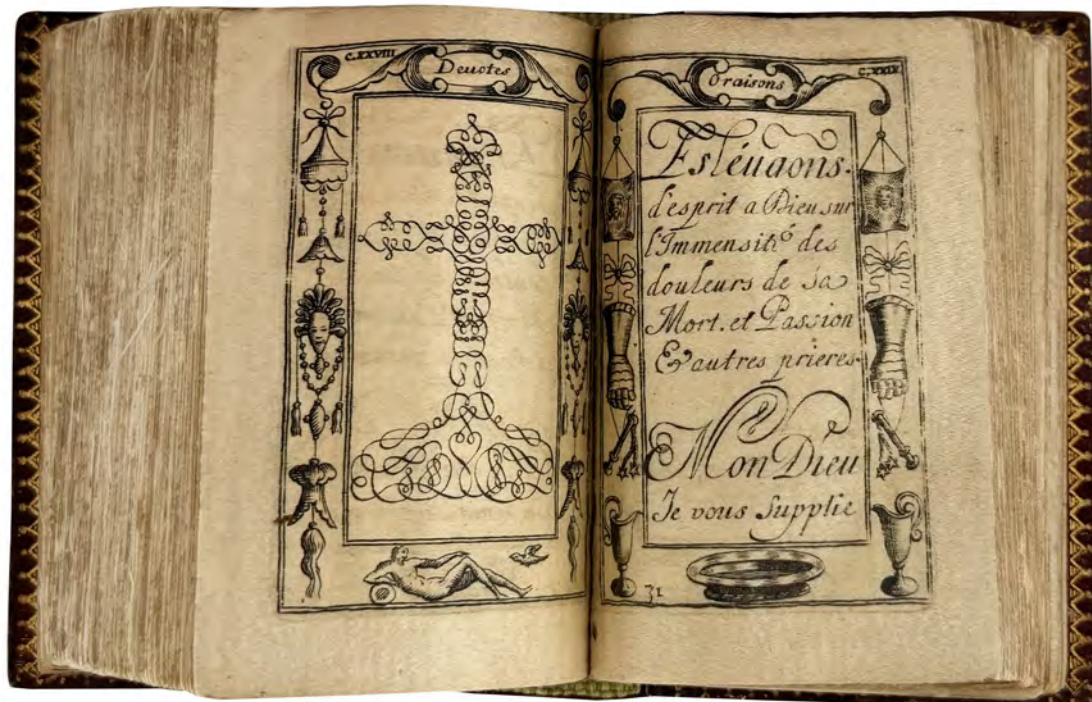 C.XXVIII
Deuotes
Oraisons
C.XXIX
Esléuaons.
d'esprit a Dieu sur
l'Immensité des
douleurs de sa
Mort. et Passion
& autres prieres.
Mon Dieu
Je vous Supplie
31